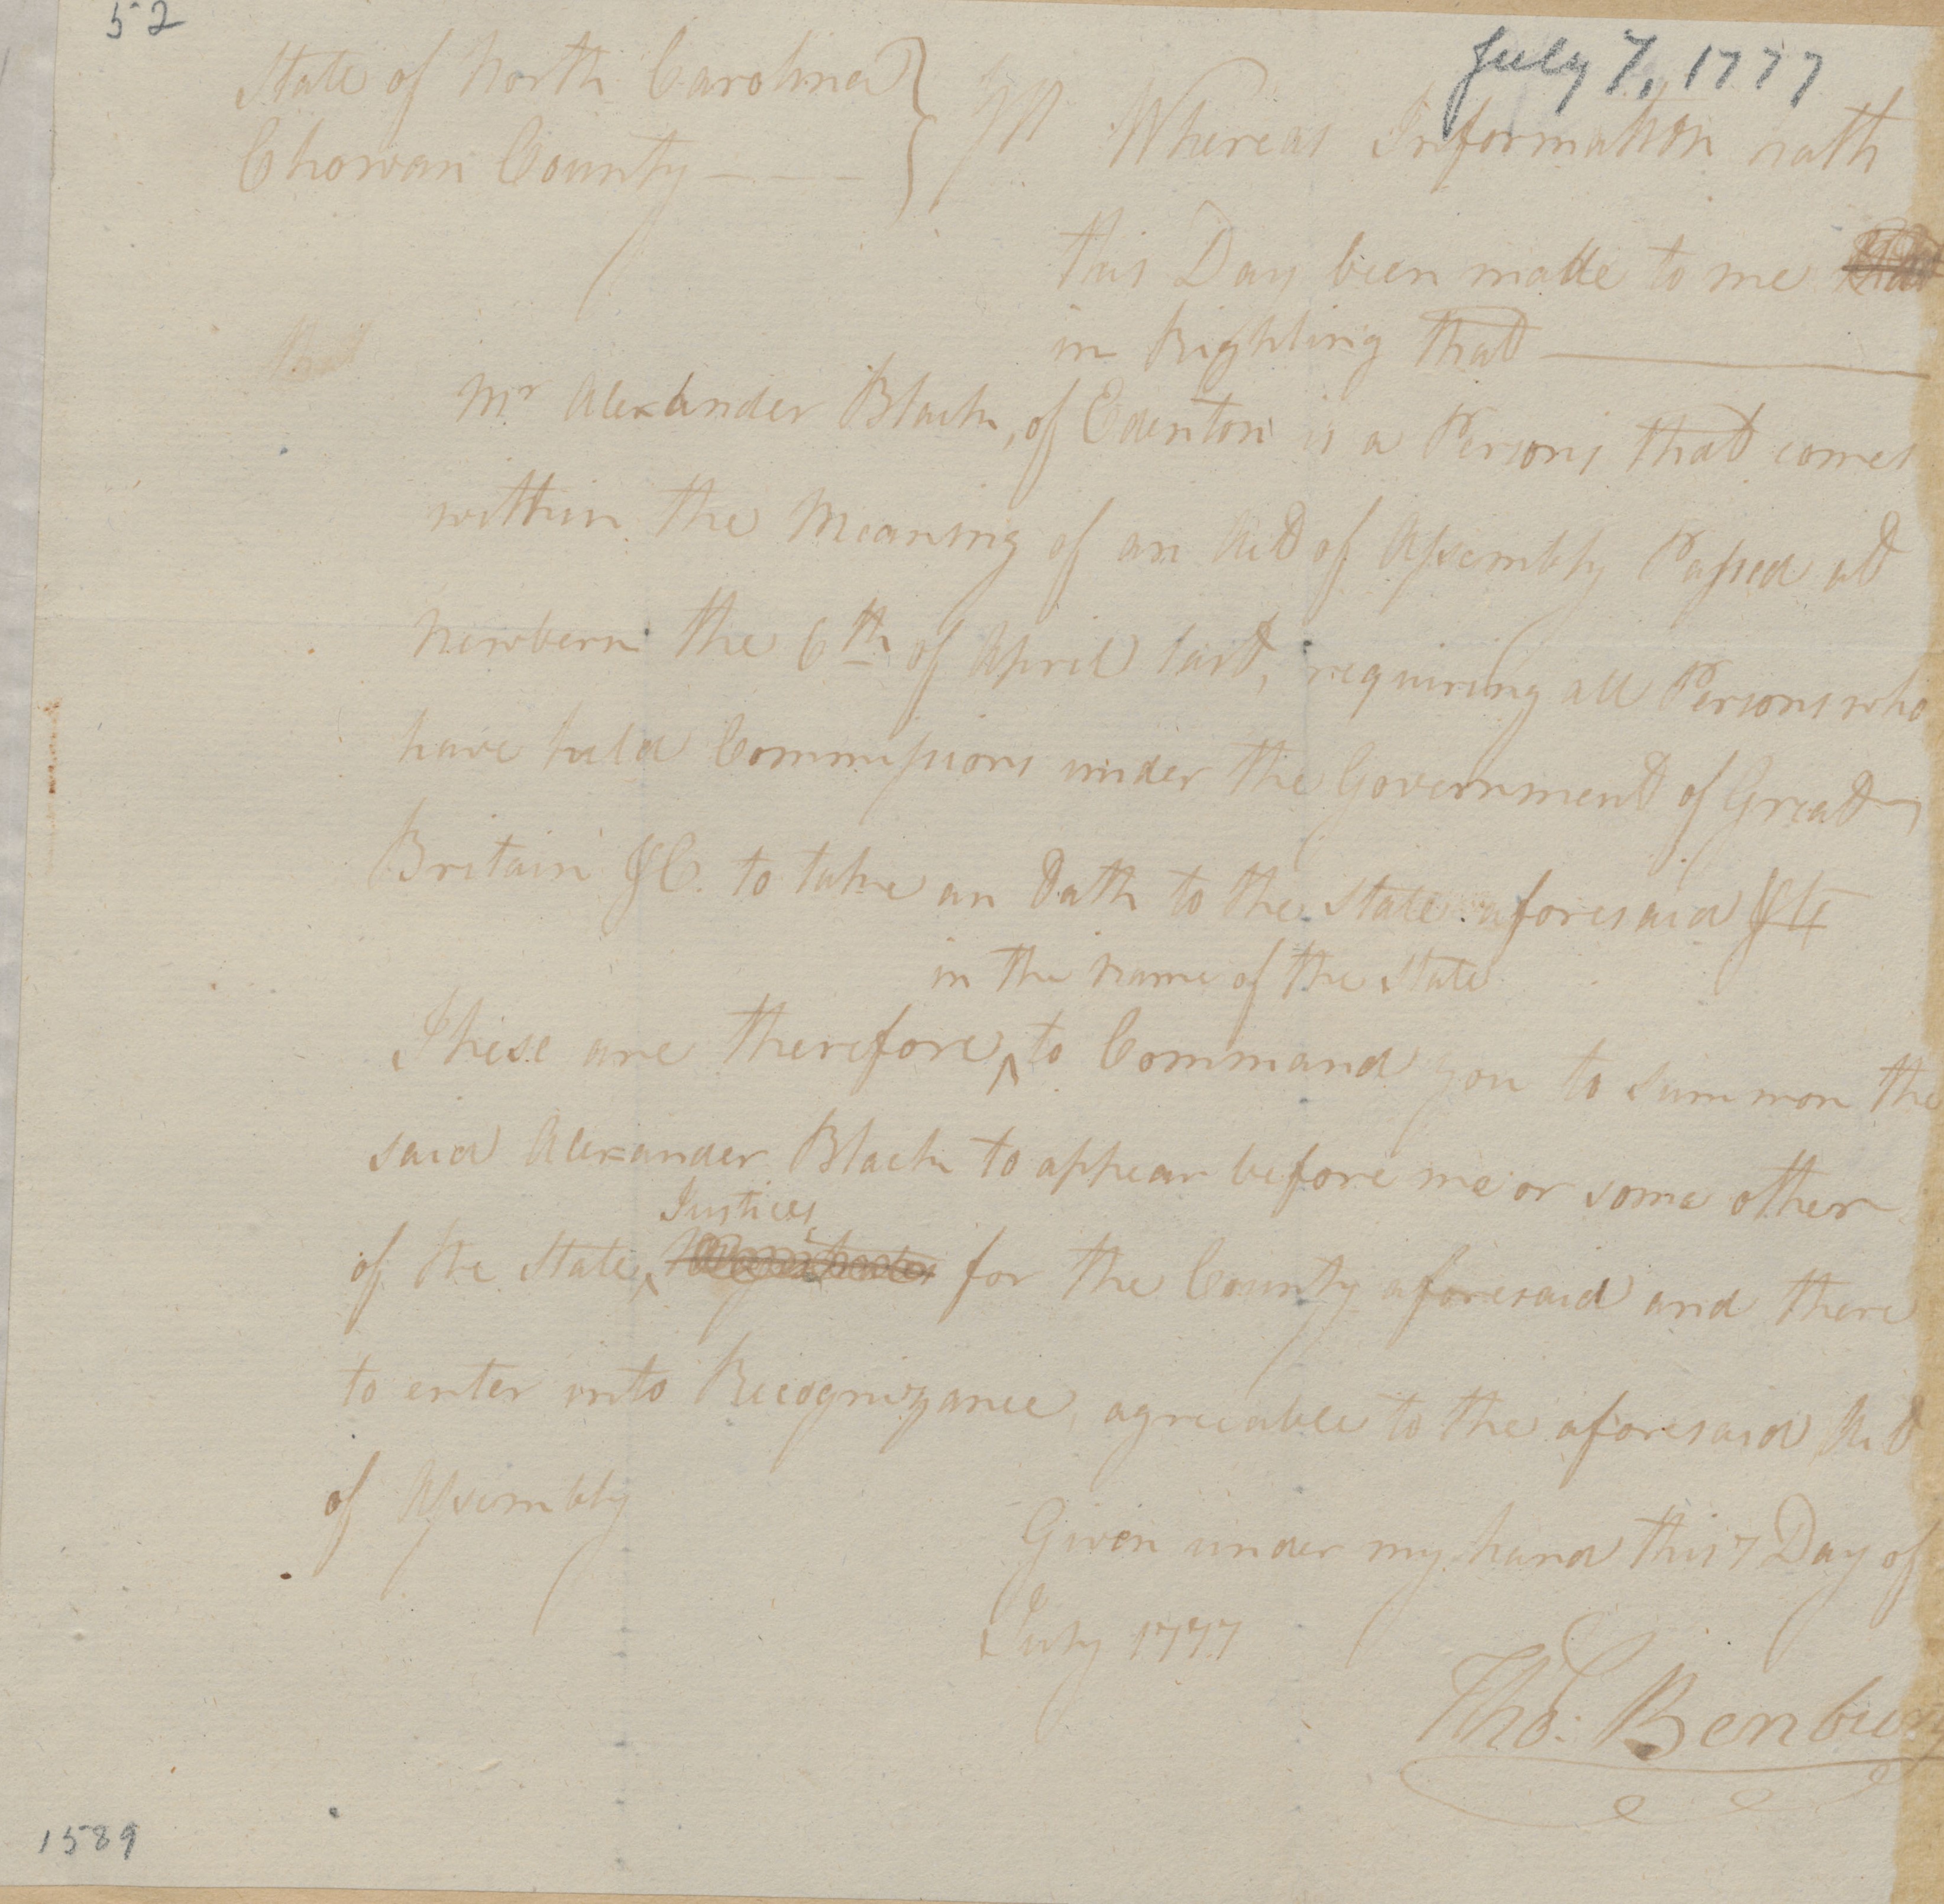 52
July 7, 1777
State of North Carolina
Chowan County - - -
Whereas Information hath
this Day been made to me
in Righting that
Mr Alexander Black, of Edenton is a Persons that comes
within the Meaning of an Act of Assembly Passed at
Newbern the 6th of April last, requiring all Persons who
have held Commissions under the Government of Great
Britain &C. to take an Oath to the State aforesaid &c
in the name of the State
These are therefore ^ to Command you to summon the
said Alexander Black to appear before me or some other
Justices
of the State ^ for the County aforesaid and there
to enter into Recognizance, agreeable to the aforesaid Act
of Assembly
Given under my hand this 7 Day of
July 1777
Tho: Benbury
1589